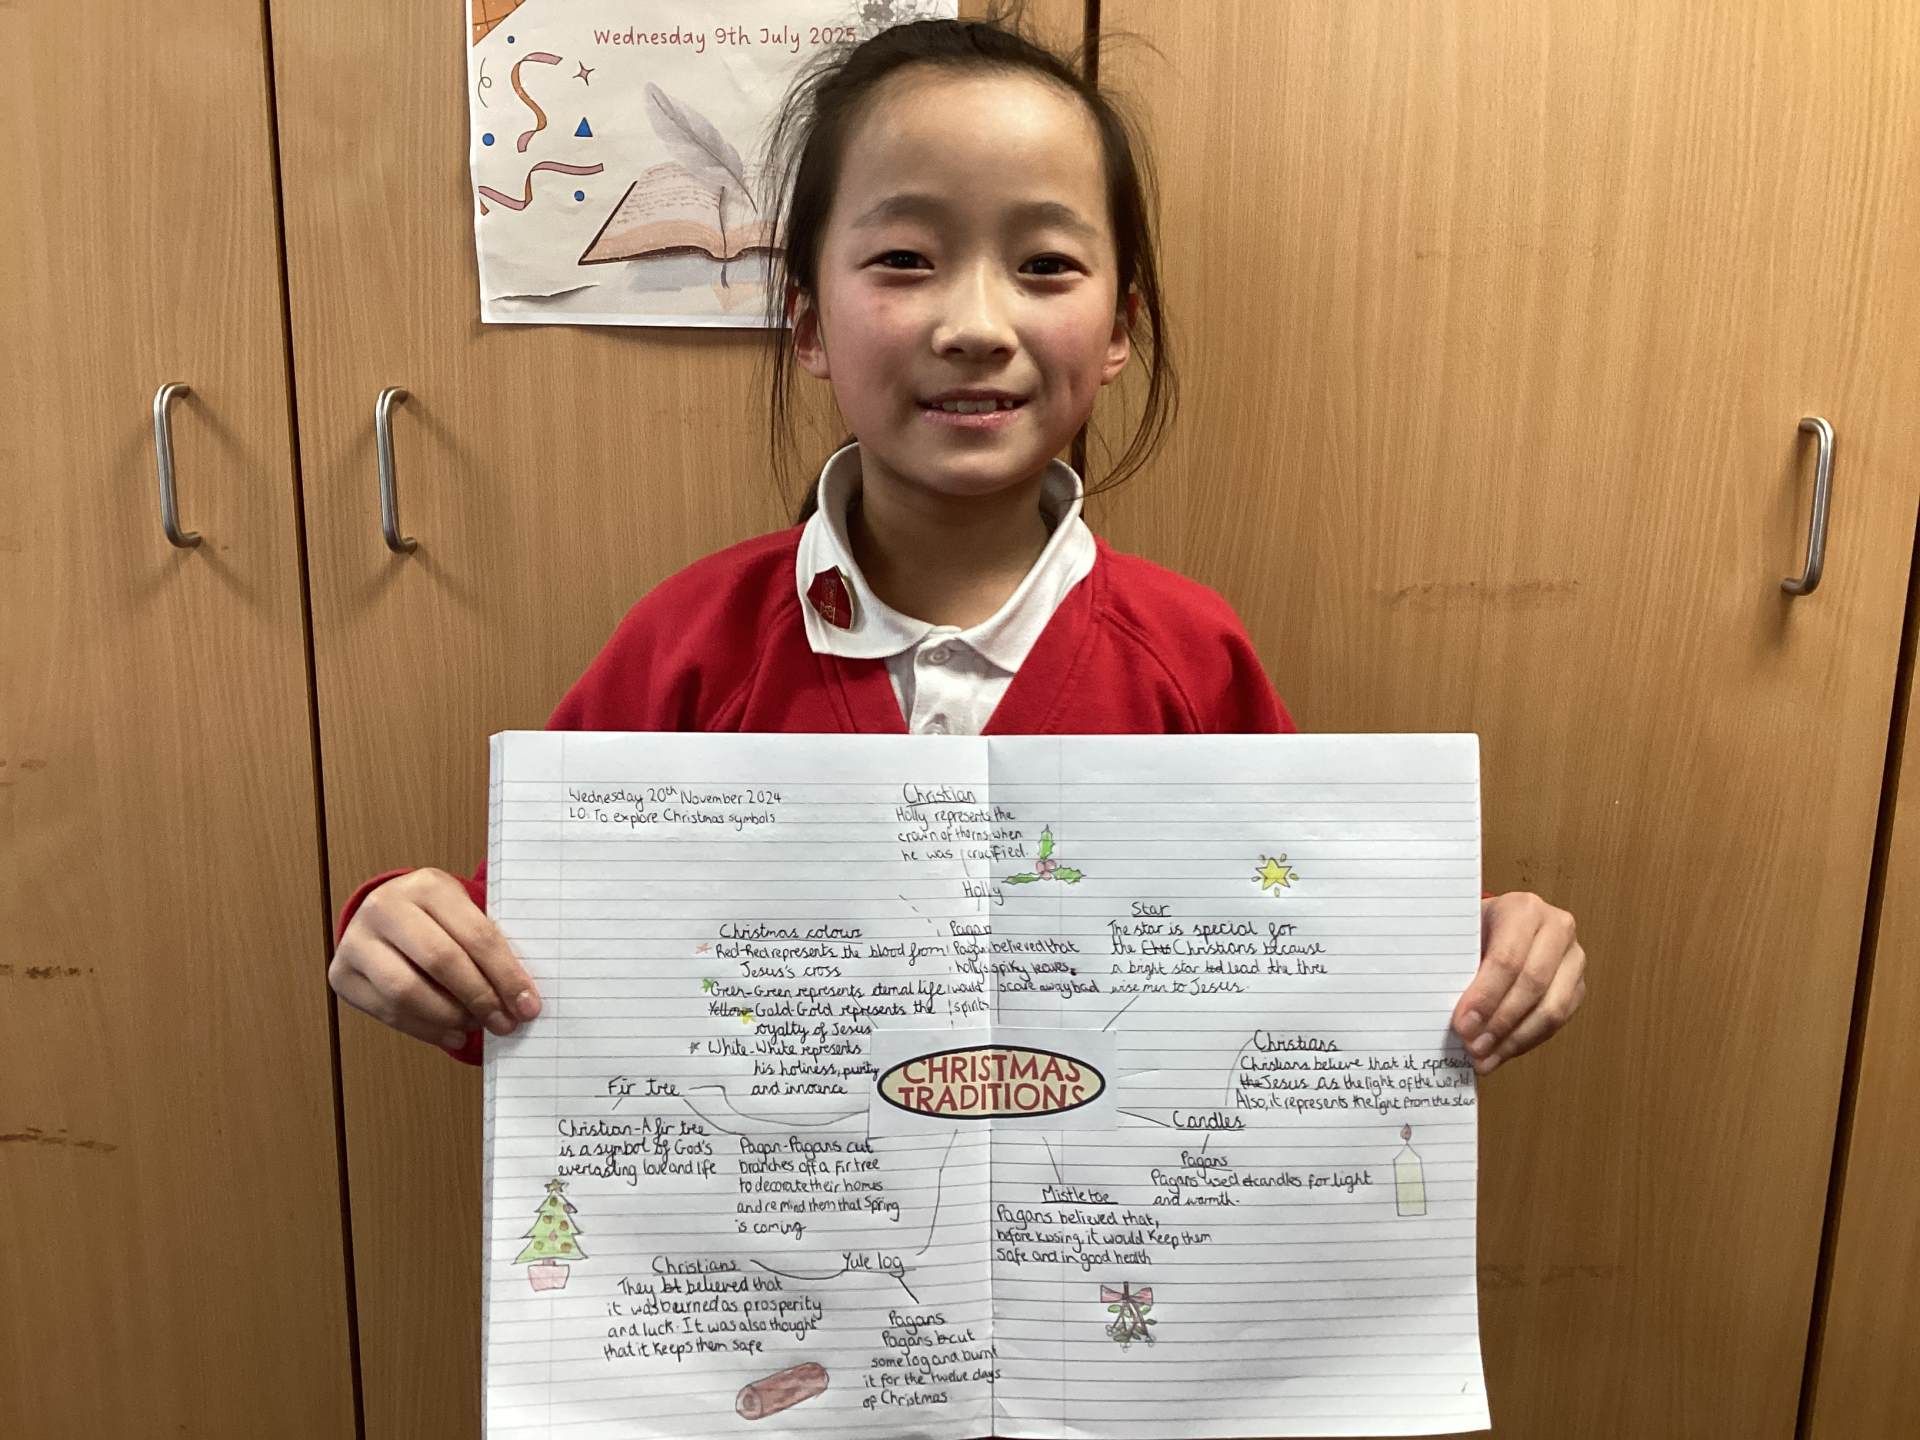 Wednesday 9th July 2025
Wednesday 20th November 2024
LO: To explore Christmas symbols
Christian
Holly represents the
crown of thorns when
he was crucified.
Holly
Pagan
Pagans believed that
holly's spiky leaves
would scare away bad
spirits
Star
The star is special for
the Christians because
a bright star lead the three
wise men to Jesus.
Christmas colours
Red-Red represents the blood from
Jesus's cross
Green-Green represents eternal life
Yellow Gold-Gold represents the
royalty of Jesus
White-White represents
his holiness, purity
and innocence
CHRISTMAS
TRADITIONS
Christians
Christians believe that it represents
the Jesus as the light of the world.
Also, it represents the light from the star
Candles
Pagans
Pagans used candles for light
and warmth.
Fir tree
Christian-A fir tree
is a symbol of God's
everlasting love and life
Pagan-Pagans cut
branches off a Fir tree
to decorate their homes
and remind them that Spring
is coming
Mistletoe
Pagans believed that,
before kissing, it would keep them
safe and in good health
Yule log
Christians
They bt believed that
it was burned as prosperity
and luck. It was also thought
that it keeps them safe
Pagans
Pagans cut
some log and burnt
it for the twelve days
of Christmas.